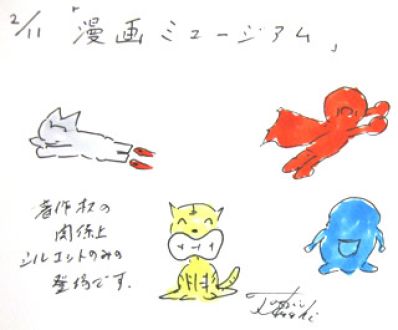 2/11 「漫画ミュージアム」
著作权の
関係上
シルエットのみの
登場です.